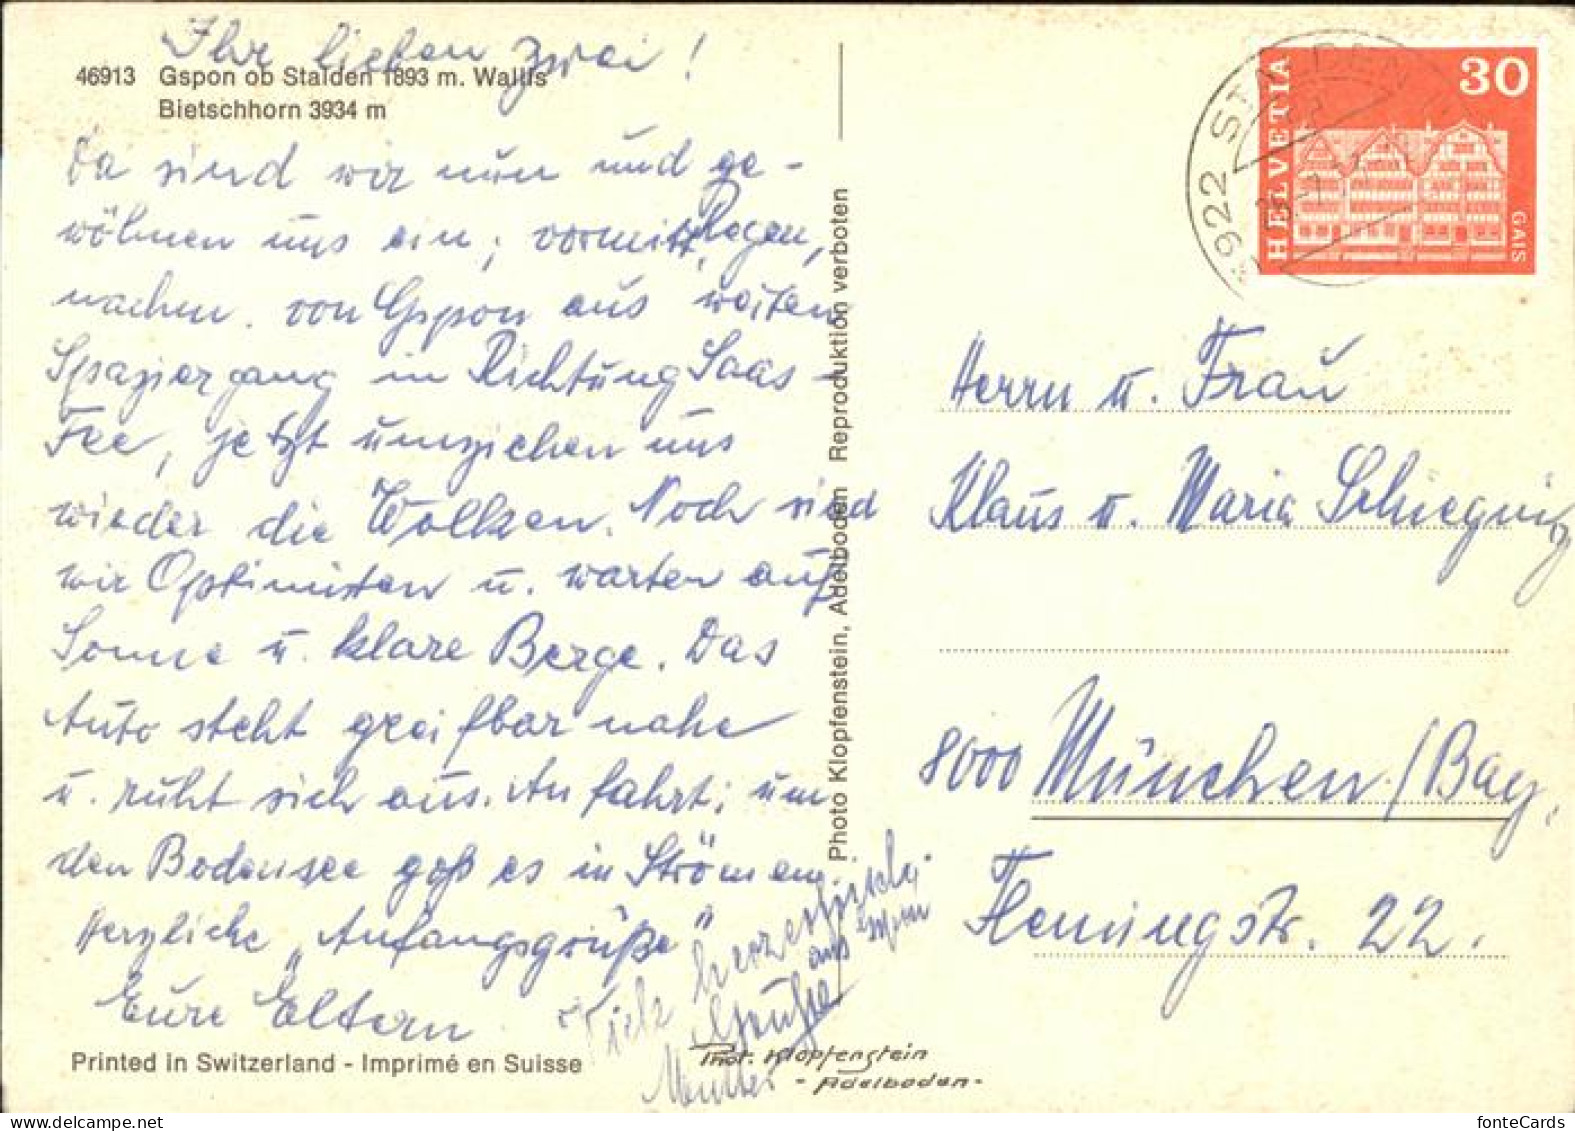 Ihr lieben zwei!
46913 Gspon ob Stalden 1893 m. Wallis
Bietschhorn 3934 m
Da sind wir nun und ge-
wöhnen uns ein; vormitt. Regen,
nachm. von Gspon aus weiten
Spaziergang in Richtung Saas-
Fee, jetzt umziehen uns
wieder die Wolken. Noch sind
wir Optimisten u. warten auf
Sonne u. klare Berge. Das
Auto steht greifbar nahe
u. ruht sich aus. Anfahrt: um
den Bodensee goß es in Strömen.
Herzliche „Anfangsgrüße"
Eure Eltern
Viele
Grüsse aus
Mutter
Printed in Switzerland - Imprimé en Suisse
Phot. Klopfenstein
- Adelboden -
Photo Klopfenstein, Adelboden Reproduktion verboten
3922 STALDEN
HELVETIA
30
GAIS
Herrn u. Frau
Klaus u. Maria
8000 München/Bay.
22.
fonteCards